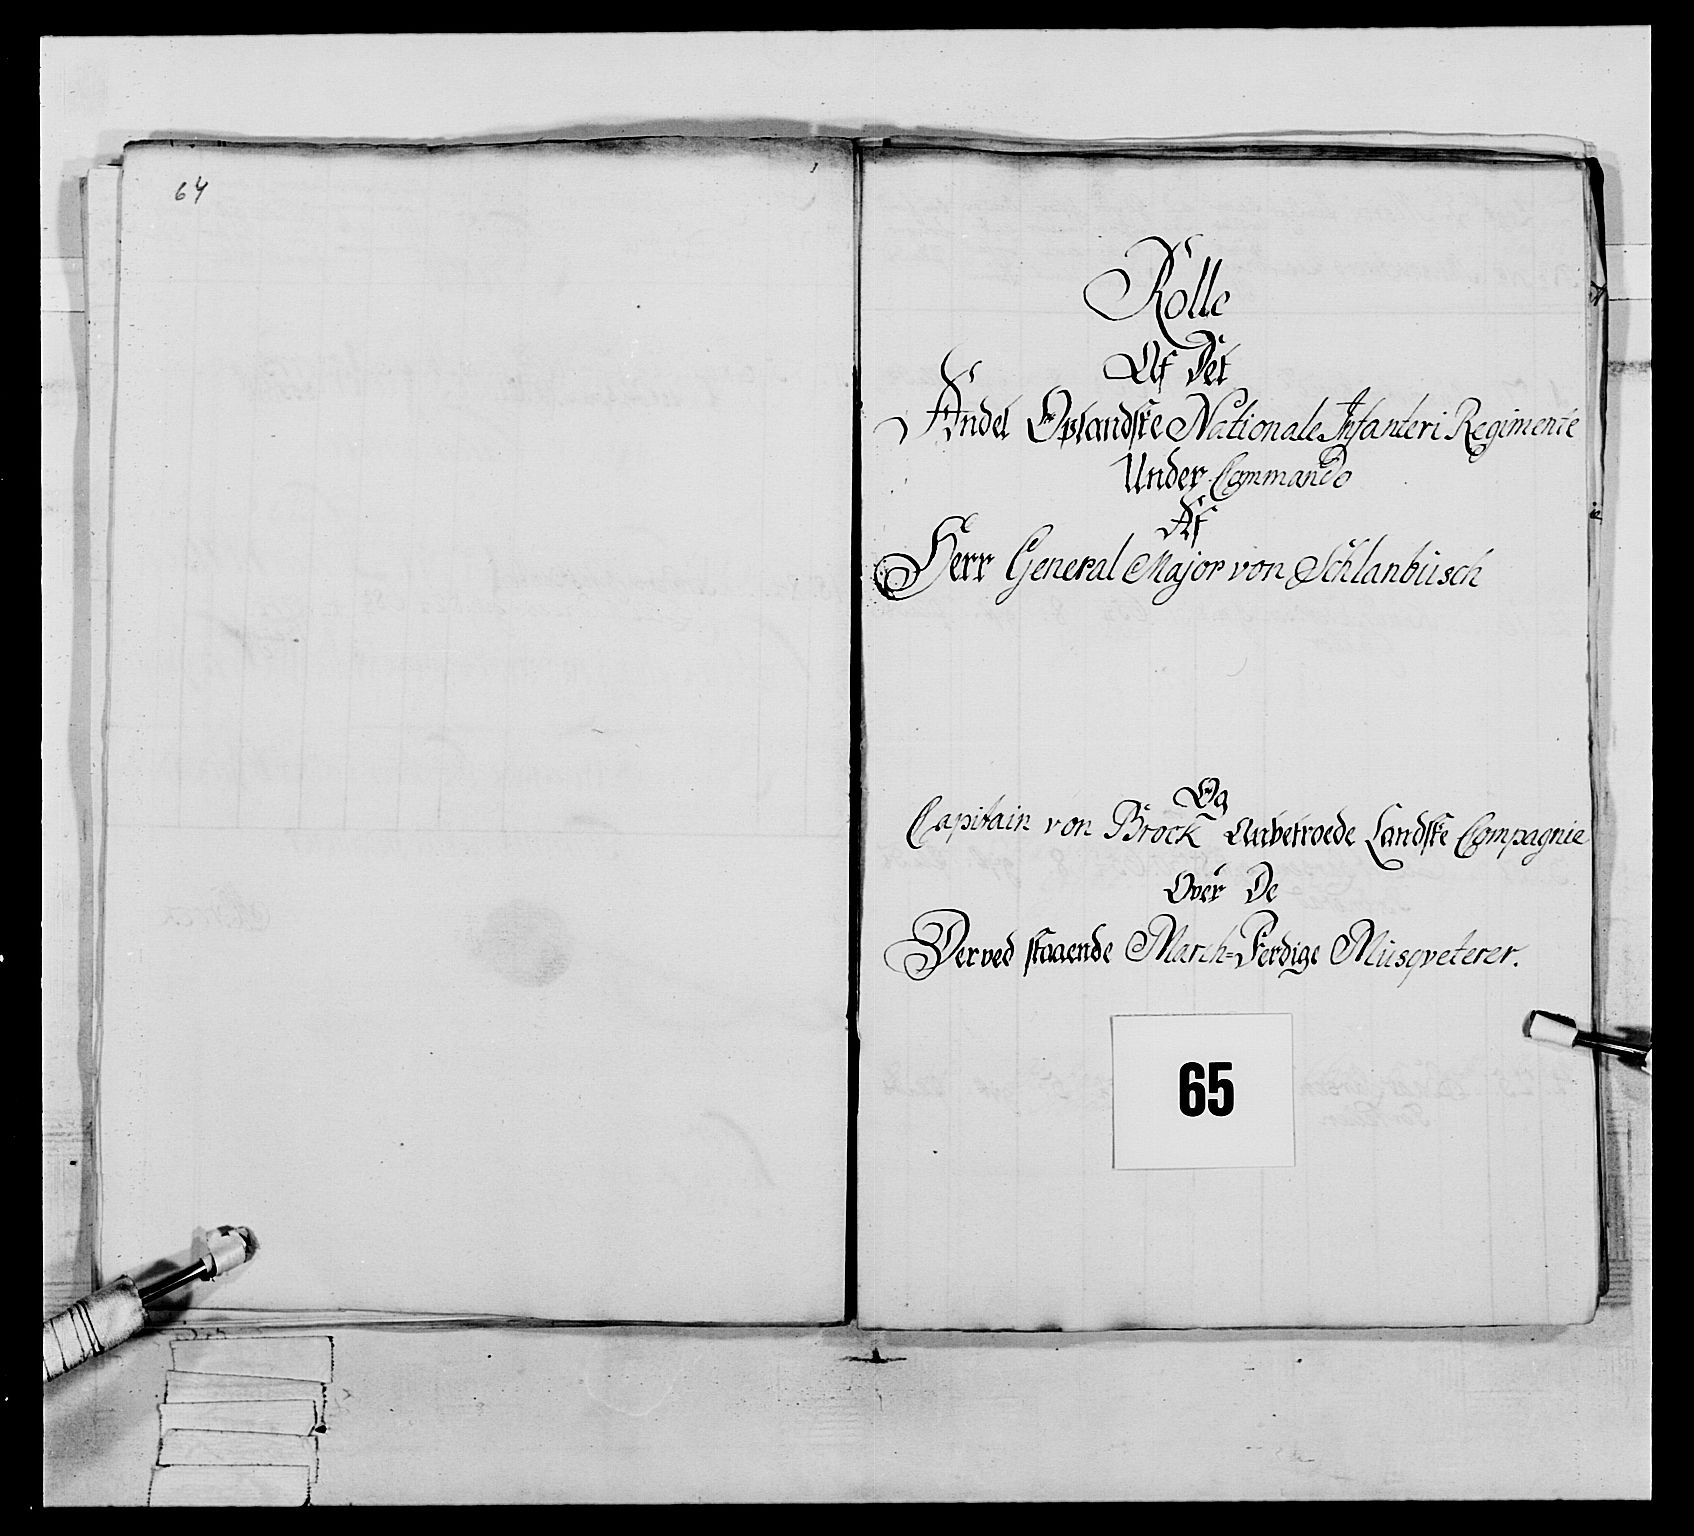 64
Rolle
Af Det
Andet Oplandske Nationale Infanteri Regimente
Under Commando
Af
Herr General Major von Schlanbusch
Og
Capitain von Brock Anbetroede Landske Compagnie
Over De
Derved staaende March=Ferdige Musqveterer.
65